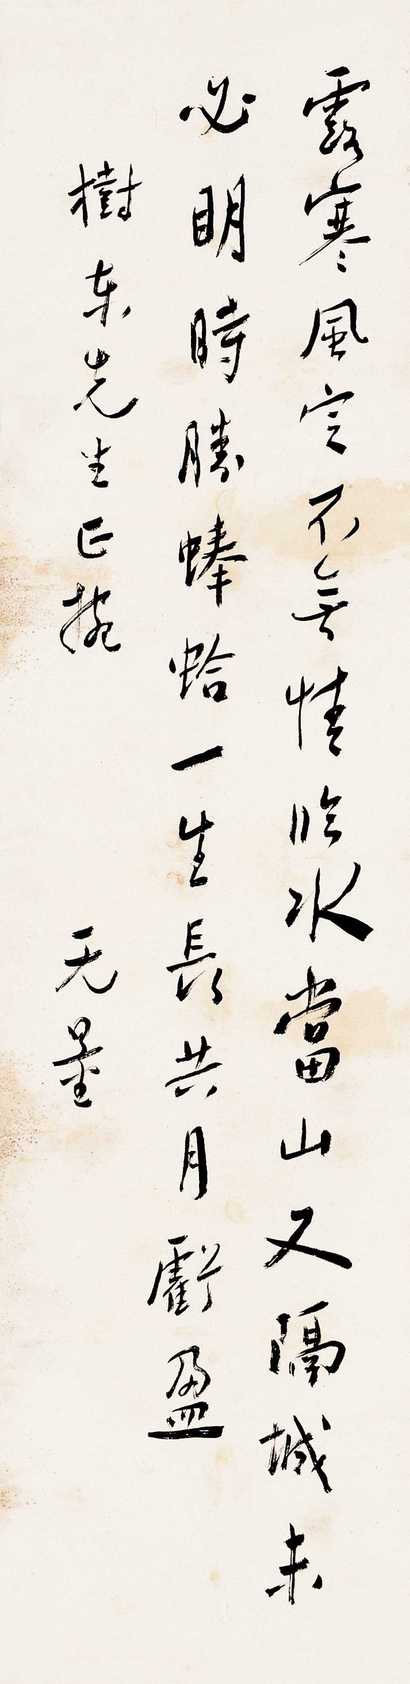 露寒風定不無情臨水當山又隔城未
必明時勝蜯蛤一生長共月虧盈
樹東先生正捥
无量